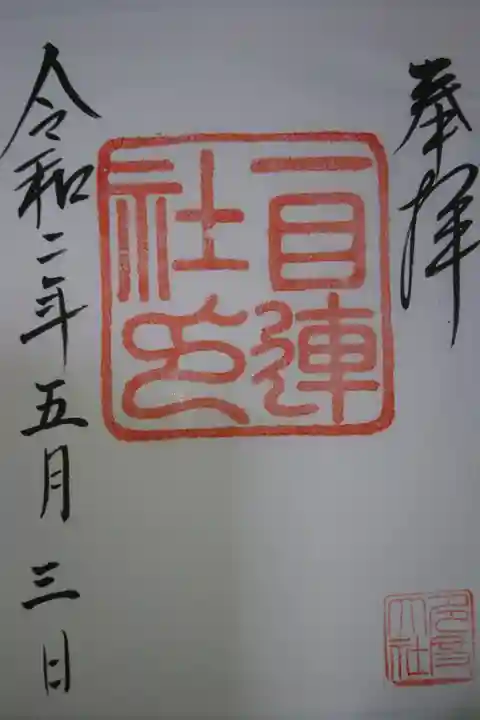 奉拝
一目連
社印
多度
大社
令和二年五月三日